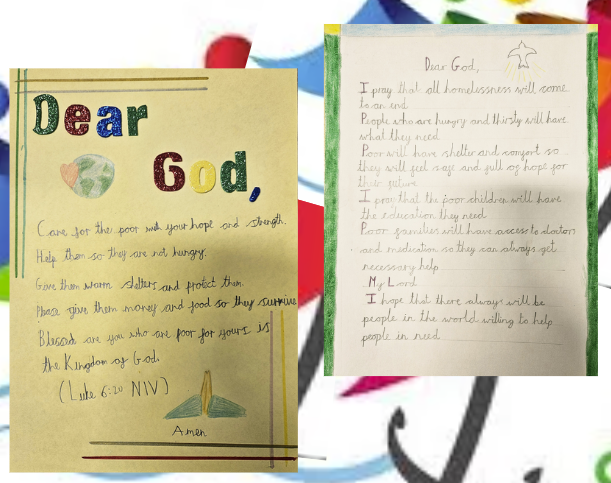 Dear
God,
Care for the poor with your hope and strength.
Help them so they are not hungry.
Give them warm shelters and protect them.
Please give them money and food so they survive
Blessed are you who are poor for yours is
the Kingdom of God.
(Luke 6:20 NIV)
Amen
Dear God,
I pray that all homelessness will come
to an end
People who are hungry and thirsty will have
what they need
Poor will have shelter and comfort so
they will feel safe and full of hope for
their future
I pray that the poor children will have
the education they need
Poor families will have access to doctors
and medication so they can always get
necessary help
My Lord
I hope that there always will be
people in the world willing to help
people in need